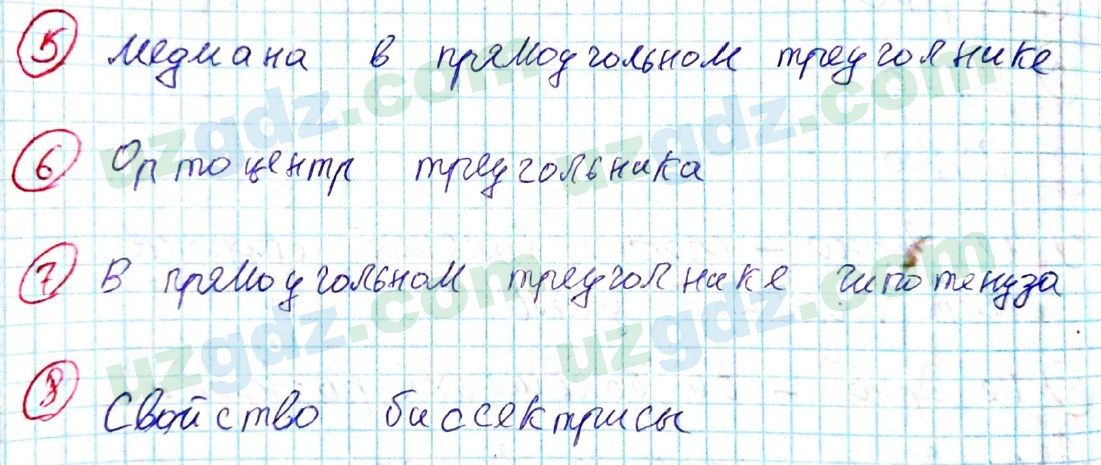 5 Медиана в прямоугольном треуголнике
6 Ортоцентр треугольника
7 В прямоугольном треуголнике гипотенуза
8 Свойство биссектрисы
uzgdz.com uzgdz.com
uzgdz.com uzgdz.com